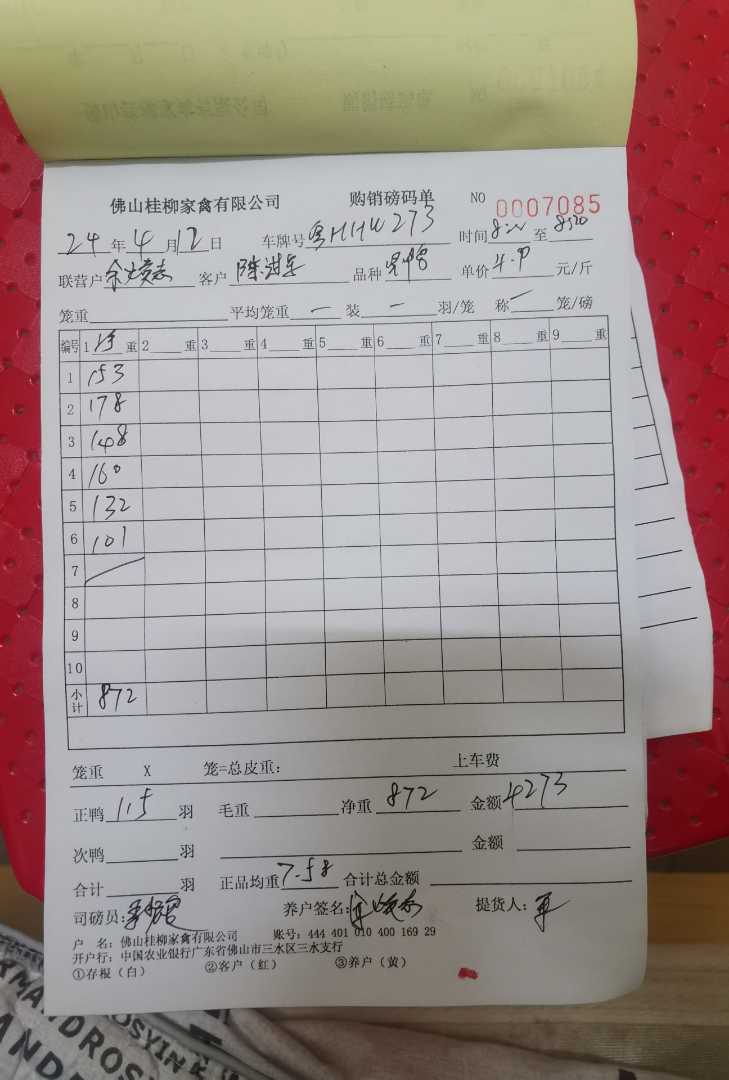 佛山桂柳家禽有限公司 购销磅码单 NO 0007085
24年4月12日 车牌号粤HHW273 时间 至
联营户 客户 品种 单价4.9元/斤
笼重 平均笼重 一 装 一 羽/笼 称 一 笼/磅
编号 1 重 2 重 3 重 4 重 5 重 6 重 7 重 8 重 9 重
1 153
2 178
3 148
4 160
5 132
6 101
7
8
9
10
小计 872
笼重 X 笼=总皮重: 上车费
正鸭 115 羽 毛重 净重 872 金额 4273
次鸭 羽 金额
合计 羽 正品均重 7.58 合计总金额
司磅员: 养户签名: 提货人:
户 名: 佛山桂柳家禽有限公司 账号: 444 401 010 400 169 29
开户行: 中国农业银行广东省佛山市三水区三水支行
①存根(白) ②客户(红) ③养户(黄)